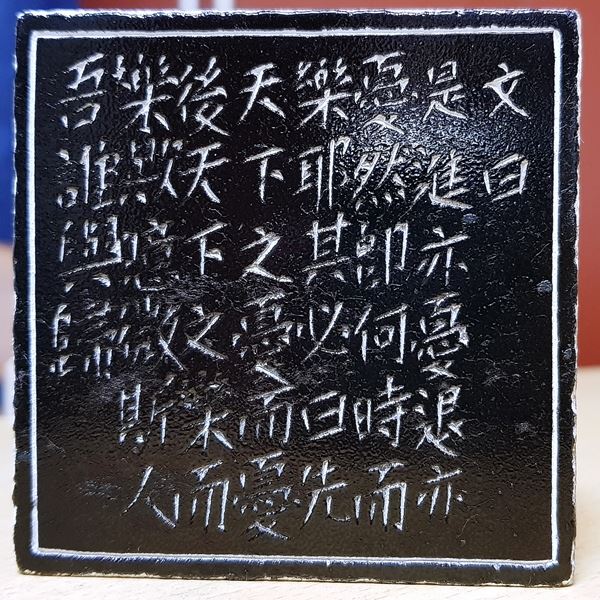 文曰
是進亦憂退亦
憂然即何時而
樂耶其必曰先
天下之憂而憂
後天下之樂而
樂歟噫微斯人
吾誰與歸